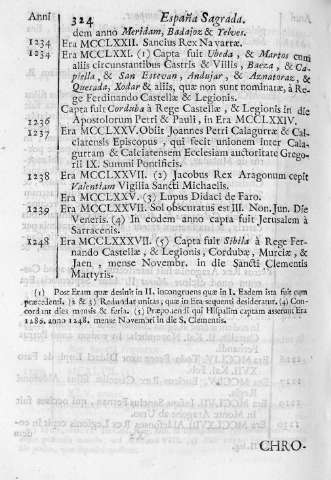 Anni 324 España Sagrada.
dem anno Meridam, Badajoz & Yelves.
1234 Era MCCLXXII. Sancius Rex Navarræ.
1234 Era MCCLXXI. (1) Capta fuit Ubeda, & Martos cum
aliis circunstantibus Castris & Villis, Baeza, & Ca-
piella, & San Estevan, Andujar, & Aznatoraz, &
Quesada, Xodar & aliis, quæ non sunt nominatæ, à Re-
ge Ferdinando Castellæ & Legionis.
Capta fuit Corduba à Rege Castellæ, & Legionis in die
1236 Apostolorum Petri & Pauli, in Era MCCLXXIV.
1237 Era MCCLXXV. Obiit Joannes Petri Calagurræ & Cal-
ciatensis Episcopus, qui fecit unionem inter Cala-
gurram & Calciatensem Ecclesiam auctoritate Grego-
rii IX. Summi Pontificis.
1238 Era MCCLXXVII. (2) Jacobus Rex Aragonum cepit
Valentiam Vigilia Sancti Michaelis.
Era MCCLXXV. (3) Lupus Didaci de Faro.
1239 Era MCCLXXVII. Sol obscuratus est III. Non. Jun. Die
Veneris. (4) In eodem anno capta fuit Jerusalem à
Sarracenis.
1248 Era MCCLXXXVII. (5) Capta fuit Sibila à Rege Fer-
nando Castellæ, & Legionis, Cordubæ, Murciæ, &
Jaen, mense Novembr. in die Sancti Clementis
Martyris.
(1) Post Eram quæ desinit in II. incongruens quæ in I. Eadem ista fuit cum
præcedenti. (2 & 3) Redundat unitas, quæ in Era sequenti desideratur. (4) Con-
cordant dies mensis & feria. (5) Præponendi qui Hispalim captam asserunt Era
1286. anno 1248. mense Novembri in die S. Clementis.
CHRO-